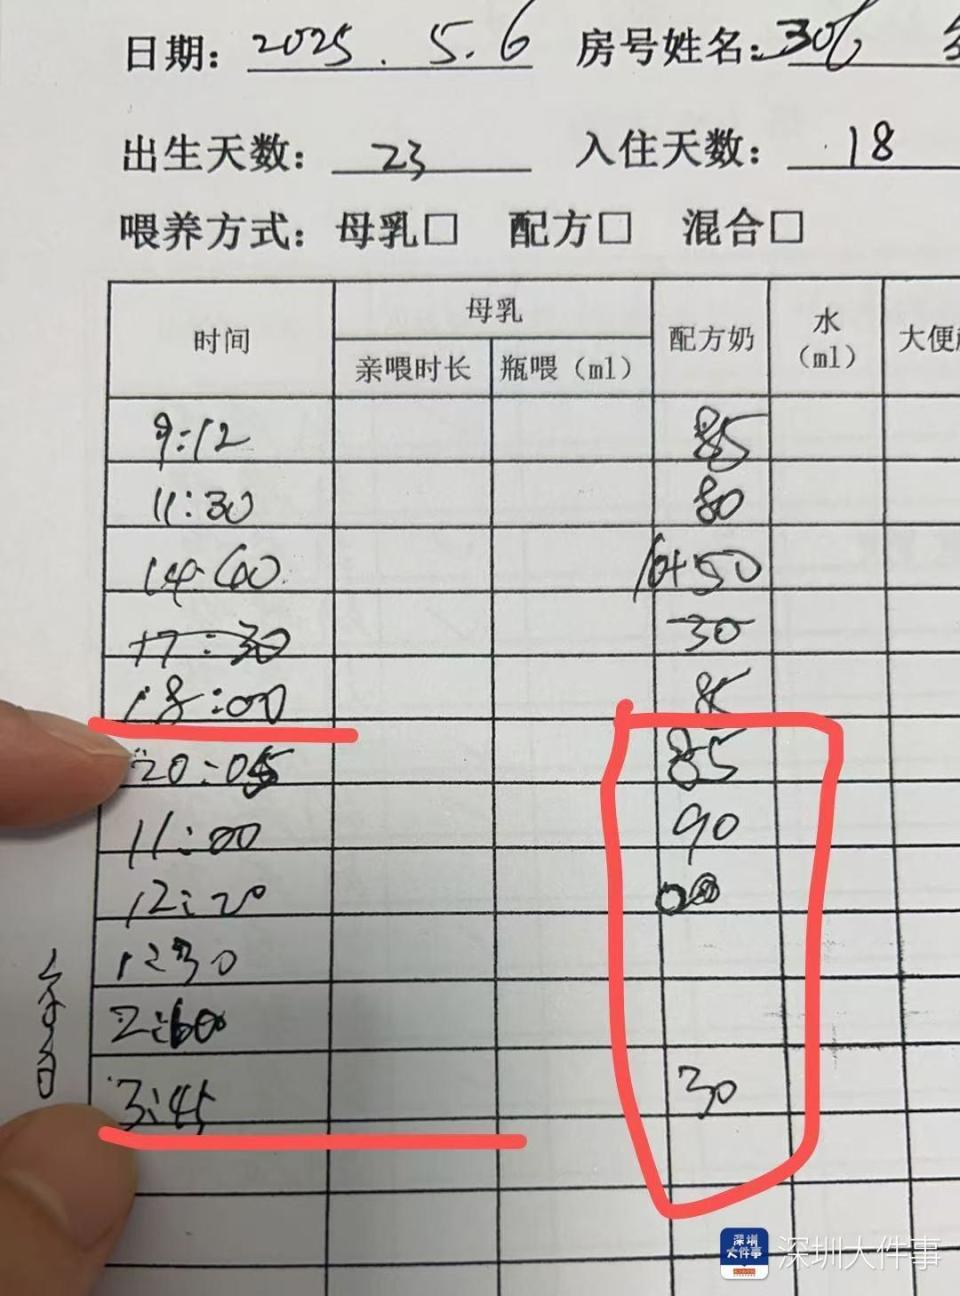 日期: 2025.5.6 房号姓名: 306
出生天数: 23 入住天数: 18
喂养方式: 母乳□ 配方□ 混合□
时间 母乳 配方奶 水(ml) 大便
亲喂时长 瓶喂(ml)
9:12 85
11:30 80
14:40 50
17:30 30
18:00 85
20:05 85
11:00 90
12:20
12:30
2:60
3:45 30
今日
深圳大件事 深圳大件事